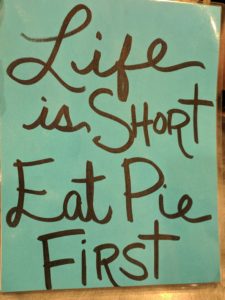 Life
is SHORT
Eat Pie
FIRST